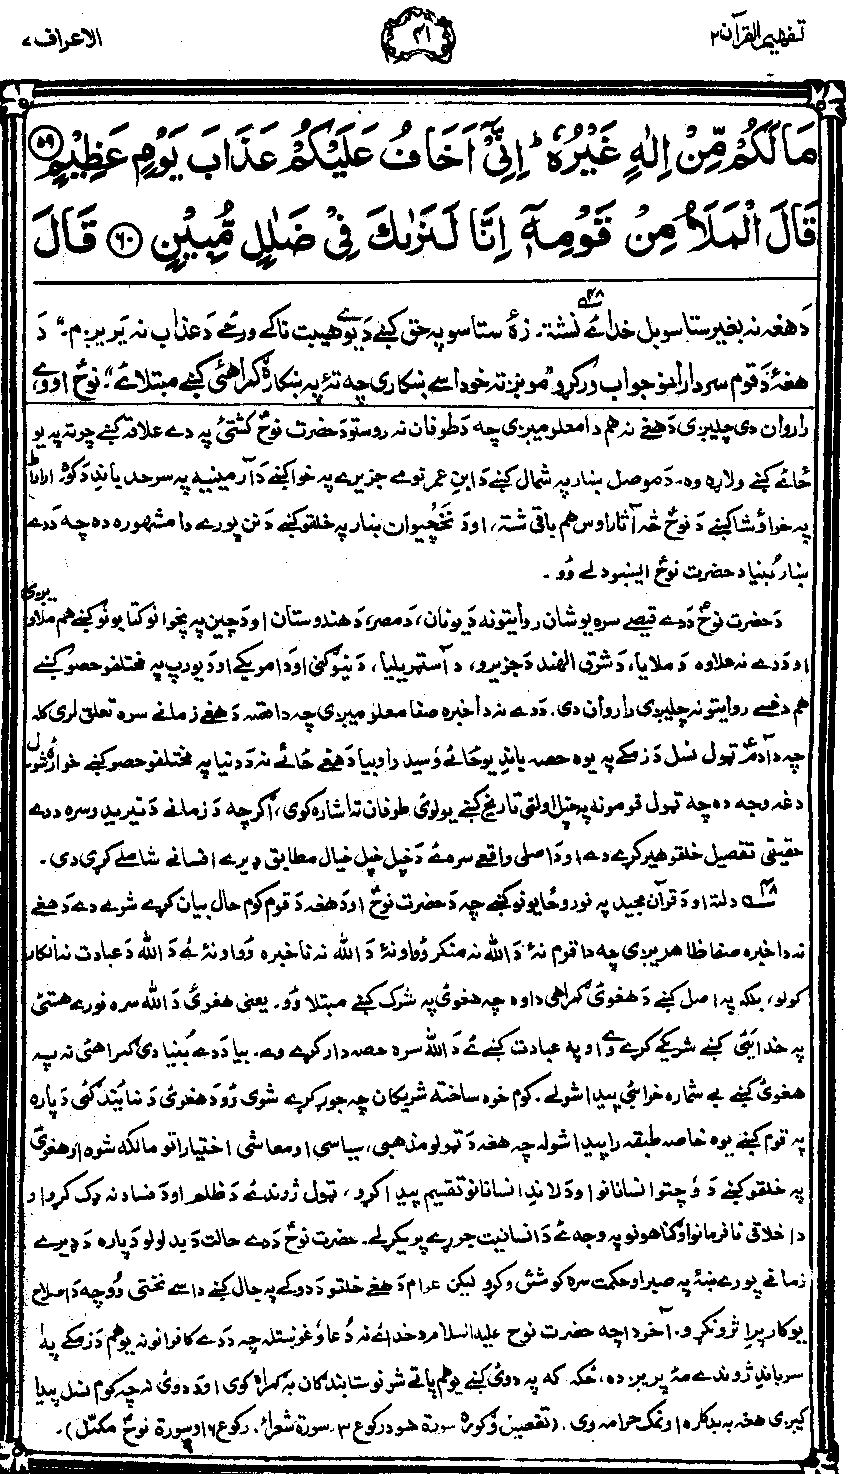 تفهيم القرآن ٢
٤١
الاعراف ٧
مَا لَكُمْ مِّنْ اِلٰهٍ غَيْرُهٗ ؕ اِنِّيْٓ اَخَافُ عَلَيْكُمْ عَذَابَ يَوْمٍ عَظِيْمٍ ﴿٥٩﴾
قَالَ الْمَلَاُ مِنْ قَوْمِهٖٓ اِنَّا لَنَرٰىكَ فِيْ ضَلٰلٍ مُّبِيْنٍ ﴿٦٠﴾ قَالَ
دَ هغه نه بغير ستاسو بل خدائے نشته. زۀ ستاسو په حق کښے دَ يو هيبت ناکے ورځے دَ عذاب نه يريږم.“ دَ
هغۀ دَ قوم سردارانو جواب ورکړو ”مونږ ته خو داسے ښکاری چه تۀ په ښکاره ګمراهئ کښے مبتلا ئے“. نوحؑ اووے
را روان دی چليږی دَ هغے نه هم دا معلوميږی چه دَ طوفان نه روستو دَ حضرت نوحؑ کشتئ په دے علاقه کښے چرته په يو
ځائے کښے ولاړه وه. دَ موصل ښار په شمال کښے دَ ابنِ عمر نومے جزيرے په خوا کښے دَ آرمينيه په سرحد باندِ دَ کوۀ اراراط
په خواؤ شا کښے دَ نوحؑ څۀ آثار اوس هم باقی شته، او دَ نخچيوان ښار په خلقو کښے دَ نن پورے دا مشهوره ده چه دَ دے
ښار بُنياد حضرت نوحؑ ايښودلے ؤو.
دَ حضرت نوحؑ دَ دے قيصے سره يوشان روايتونه دَ يونان، دَ مصر، دَ هندوستان او دَ چين په پخوانو کتابونو کښے هم ملاويږی
او دَ دے نه علاوه دَ ملايا، دَ شرق الهند دَ جزيرو، دَ آسټريليا، دَ نيوګنی او دَ امريکے او دَ يورپ په مختلفو حصو کښے
هم دغسے روايتونه چليږی را روان دی. دَ دے نه دا خبره صفا معلوميږی چه دا قصه دَ هغے زمانے سره تعلق لری کله
چه دَ آدمؑ ټول نسل دَ زمکے په يوه حصه باندِ يوځائے ؤسيدۀ او بيا دَ هغے ځائے نه دَ دنيا په مختلفو حصو کښے خوارۀ شول
دغه وجه ده چه ټول قومونه په خپل اولنی تاريخ کښے يو لوئ طوفان ته اشاره کوی، اګرچه دَ زمانے دَ تيريدو سره دے
حقيقی تفصيل خلقو هير کړے دے او دَ اصلی واقعے سره ئے دَ خپل خپل خيال مطابق ډيرے افسانے شاملے کړی دی.
٤٨ دلته او دَ قرآن مجيد په نورو ځايونو کښے چه دَ حضرت نوحؑ او دَ هغه دَ قوم کوم حال بيان کړے شوے دے دَ هغے
نه دا خبره صفا ظاهريږی چه دا قوم نۀ دَ الله نه منکر ؤو او نۀ دَ الله نه ناخبره ؤو او نۀ ئے دَ الله دَ عبادت نه انکار
کولو، بلکه په اصل کښے دَ هغوئ ګمراهی دا وه چه هغوئ په شرک کښے مبتلا ؤو. يعنی هغوئ دَ الله سره نورے هستئ
په خدايئ کښے شريکے کړے وے او په عبادت کښے ئے دَ الله سره حصه دار کړے وے. بيا دَ دے بُنيادی ګمراهئ نه په
هغوئ کښے بے شماره خرابئ پيدا شولے. کوم خود ساخته شريکان چه جوړ کړے شوی ؤو دَ هغوئ دَ نمايندګئ دَ پاره
په قوم کښے يوه خاصه طبقه را پيدا شوله چه هغه دَ ټولو مذهبی، سياسی او معاشی اختياراتو مالکه شوه او هغوئ
په خلقو کښے دَ اوچتو انسانانو او دَ لاندِ انسانانو تقسيم پيدا کړو، ټول ژوندے دَ ظلم او دَ فساد نه ډک کړو او
دَ اخلاقی نافرمانو او ګناهونو په وجه ئے دَ انسانيت جرړے پرېکړلے. حضرت نوحؑ دَ دے حالت دَ بدلولو دَ پاره دَ ډيرے
زمانے پورے ښۀ په صبر او حکمت سره کوشش وکړو ليکن عوام دَ هغے خلقو دَ دوکے په جال کښے داسے نختی ؤو چه دَ اصلاح
يو کار پرِ اثر ونکړو. آخر دا چه حضرت نوح عليه السلام دَ خدائے نه دُعا وغوښتله چه دَ دے کافرانو نه يو هم دَ زمکے په
سر باندِ ژوندے مۀ پريږده، ځکه که په دوئ کښے يو هم پاتے شو نو ستا بندګان به ګمراه کوی او دَ دوئ نه چه کوم نسل پيدا
کيږی هغه به بدکاره او نمک حرامه وی. (تفصيل دَ ګوره سورة هود رکوع ٣. سورة شعراء رکوع ٦ او سورة نوحؑ مکمّل).